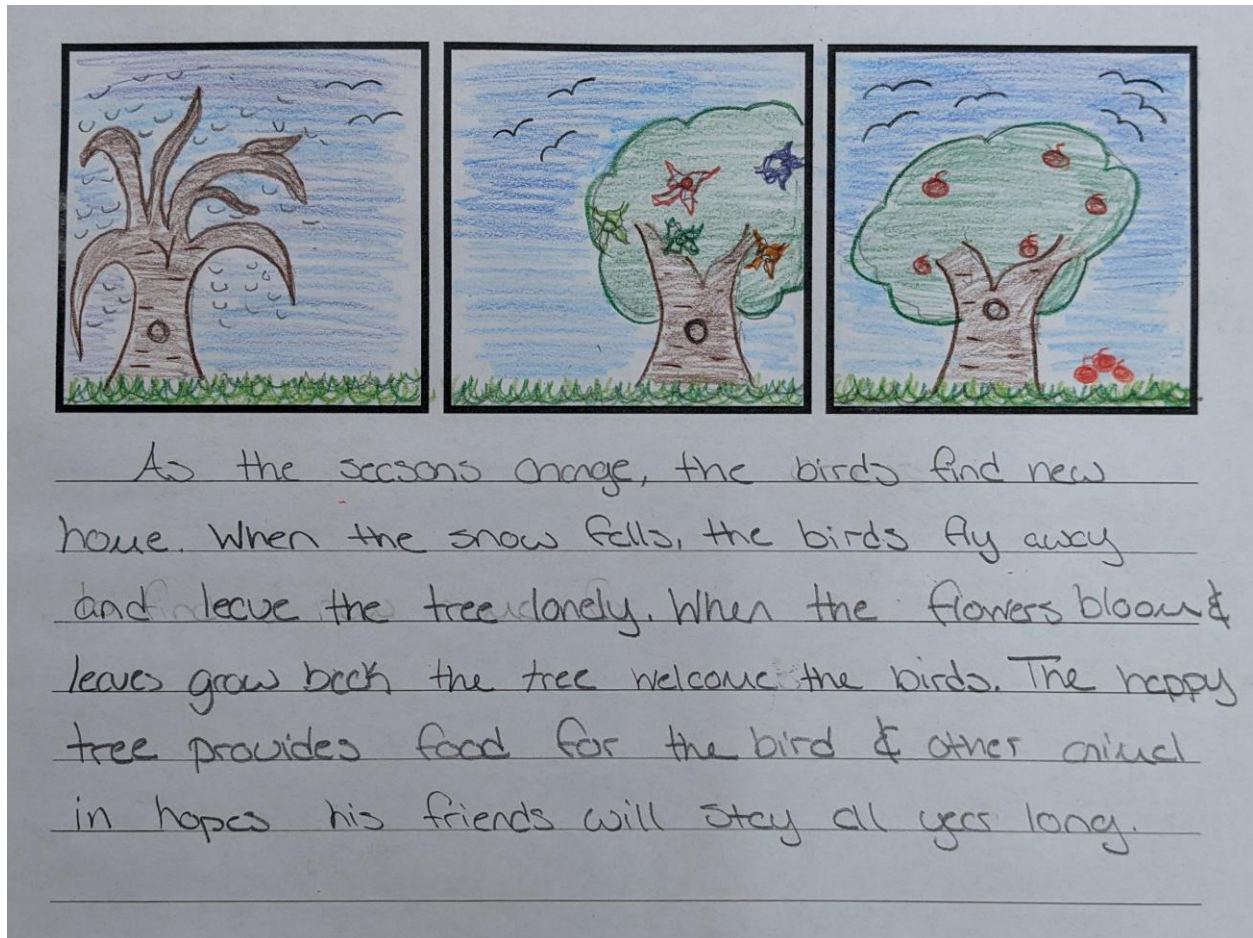 As the seasons change, the birds find new
home. When the snow falls, the birds fly away
and leave the tree lonely. When the flowers bloom &
leaves grow back the tree welcome the birds. The happy
tree provides food for the bird & other animal
in hopes his friends will stay all year long.